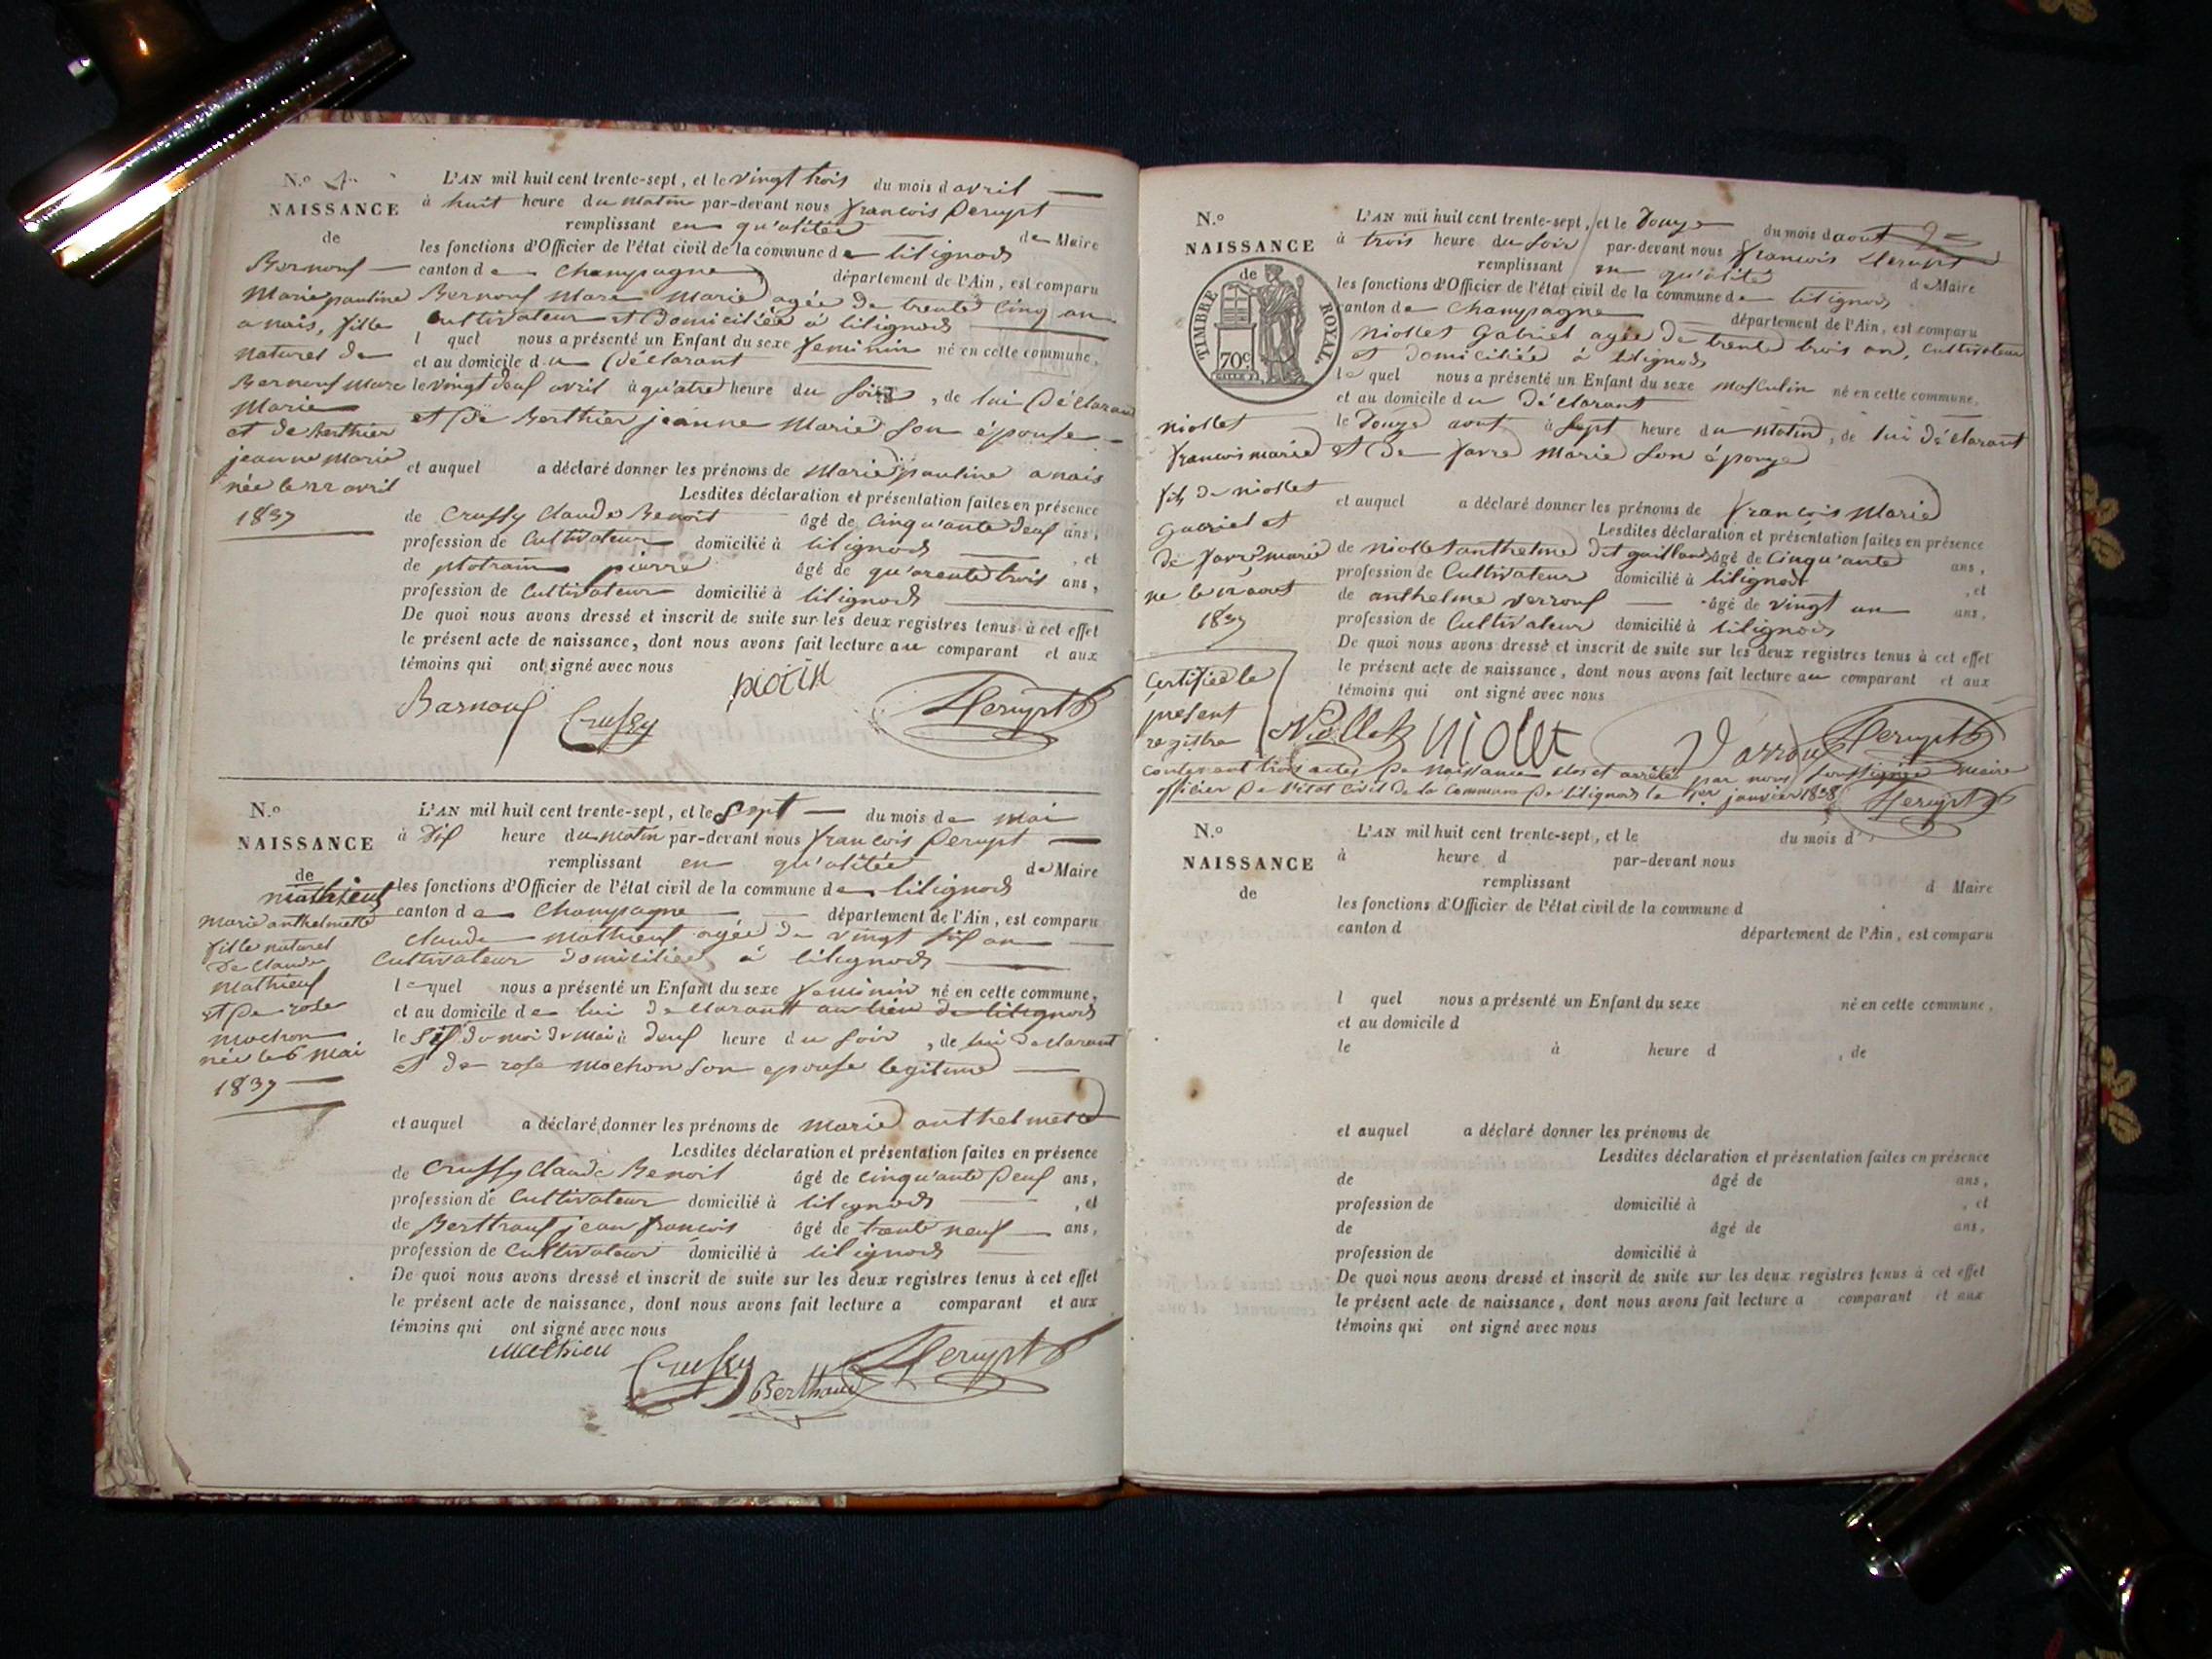 N.o
NAISSANCE
de
Bernouf
Marie pauline
anais, fille
naturel de
Bernouf Marc
Marie
et de Berthier
jeanne Marie
née le 22 avril
1837
L'AN mil huit cent trente-sept, et le vingt trois du mois d avril
à huit heure du matin par-devant nous francois Perupt
remplissant en qu'alitée de Maire
les fonctions d'Officier de l'état civil de la commune de lilignods
canton de Champagne département de l'Ain, est comparu
Bernouf Marc Marie agée de trente cinq an
Cultivateur et Domiciliée à lilignods
l quel nous a présenté un Enfant du sexe feminin né en cette commune,
et au domicile du Déclarant
le vingt deuf avril à qu'atre heure du soir, de lui Déclarant
et De Berthier jeanne Marie son épouse
et auquel a déclaré donner les prénoms de Marie pauline anais
Lesdites déclaration et présentation faites en présence
de Crussy Claude Benoit âgé de Cinqu'ante deuf ans,
profession de Cultivateur domicilié à lilignods , et
de pierre âgé de qu'arente trois ans,
profession de Cultivateur domicilié à lilignods
De quoi nous avons dressé et inscrit de suite sur les deux registres tenus à cet effet
le présent acte de naissance, dont nous avons fait lecture au comparant et aux
témoins qui ont signé avec nous
Barnouf Crussy Perupt
N.o
NAISSANCE
de
mathieuf
marie anthelmette
fille naturel
De Claude
Mathieuf
et De rose
mochon
née le 6 mai
1837
L'AN mil huit cent trente-sept, et le sept du mois de mai
à Dif heure du matin par-devant nous francois Perupt
remplissant en qu'alitée de Maire
les fonctions d'Officier de l'état civil de la commune de lilignods
canton de Champagne département de l'Ain, est comparu
Claude Mathieuf agée de vingt sif an
Cultivateur domiciliée à lilignods
le quel nous a présenté un Enfant du sexe feminin né en cette commune,
et au domicile de lui declarant au lieu de lilignods
le sif du moi de mai à deuf heure du soir, de lui declarant
et de rose mochon son epouse legitime
et auquel a déclaré donner les prénoms de marie anthelmette
Lesdites déclaration et présentation faites en présence
de Crussy Claude Benoit âgé de cinqu'ante Deuf ans,
profession de Cultivateur domicilié à lilignods , et
de jean francois âgé de trente neuf ans,
profession de Cultivateur domicilié à lilignods
De quoi nous avons dressé et inscrit de suite sur les deux registres tenus à cet effet
le présent acte de naissance, dont nous avons fait lecture a comparant et aux
témoins qui ont signé avec nous
Mathieu Crussy Berthaud Perupt
N.o
NAISSANCE
de
TIMBRE ROYAL.
70c.
niollet
francois marie
fils de niollet
gabriel et
de favre marie
né le 12 aout
1837
L'AN mil huit cent trente-sept, et le Douze du mois d aout
à trois heure du soir par-devant nous francois Perupt
remplissant en qu'alité de Maire
les fonctions d'Officier de l'état civil de la commune de lilignods
canton de Champagne département de l'Ain, est comparu
niollet Gabriel agée de trente trois an, Cultivateur
et domiciliée à lilignods
le quel nous a présenté un Enfant du sexe masculin né en cette commune,
et au domicile du Déclarant
le Douze aout à sept heure du matin, de lui Déclarant
et De favre Marie son épouze
et auquel a déclaré donner les prénoms de françois Marie
Lesdites déclaration et présentation faites en présence
de niollet anthelme dit gaillard âgé de Cinqu'ante ans,
profession de Cultivateur domicilié à lilignods , et
de anthelme verrouf âgé de vingt un ans,
profession de Cultivateur domicilié à lilignods
De quoi nous avons dressé et inscrit de suite sur les deux registres tenus à cet effet
le présent acte de naissance, dont nous avons fait lecture au comparant et aux
témoins qui ont signé avec nous
Niollet niolet Perupt
Certifiée le
présent
registre
contenant trois actes De Naissance clos et arrêté par nous soussigné maire
officier De l'état Civil de la Commune De lilignods le 1er janvier 1838 Perupt
N.o
NAISSANCE
de
L'AN mil huit cent trente-sept, et le du mois d
à heure d par-devant nous
remplissant d Maire
les fonctions d'Officier de l'état civil de la commune d
canton d département de l'Ain, est comparu
l quel nous a présenté un Enfant du sexe né en cette commune,
et au domicile d
le à heure d , de
et auquel a déclaré donner les prénoms de
Lesdites déclaration et présentation faites en présence
de âgé de ans,
profession de domicilié à , et
de âgé de ans,
profession de domicilié à
De quoi nous avons dressé et inscrit de suite sur les deux registres tenus à cet effet
le présent acte de naissance, dont nous avons fait lecture a comparant et aux
témoins qui ont signé avec nous